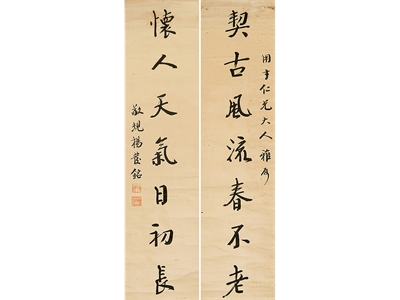 契古風流春不老
用亨仁兄大人雅屬
懷人天氣日初長
敬規楊
銘